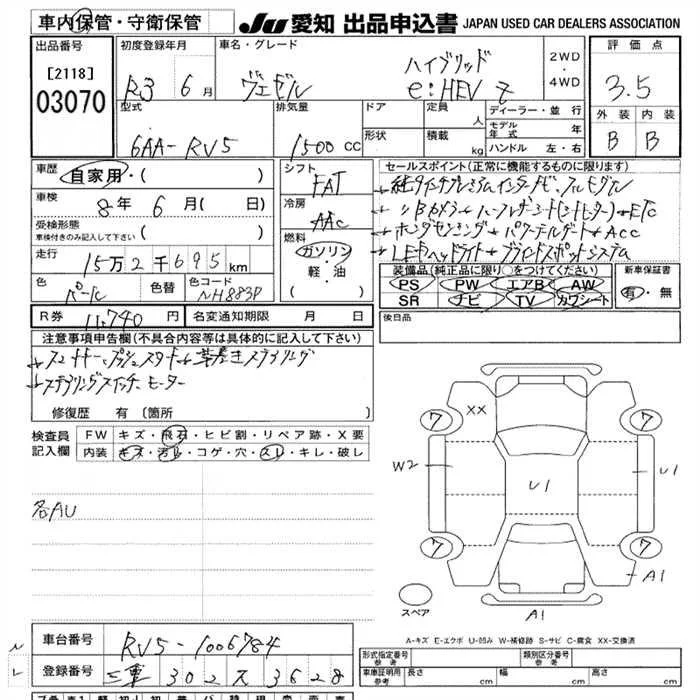 車内保管・守衛保管
JU 愛知 出品申込書 JAPAN USED CAR DEALERS ASSOCIATION
出品番号
[2118]
03070
初度登録年月
R3 6 月
車名・グレード
ヴェゼル ハイブリッド
e:HEV Z
2WD
・
4WD
評価点
3.5
外装 内装
B B
型式
6AA-RV5
排気量
1500 CC
ドア
形状
定員 人
積載 kg
ディーラー・並行
モデル年式 年
ハンドル 左・右
車歴
自家用・( )
車検
8年 6月( 日)
受検形態
車検付きのみ記入して下さい ( )
走行
15万2千695km
色
パール
色替
色コード
NH883P
シフト
FAT
冷房
AAC
燃料
ガソリン
・
軽・油
セールスポイント(正常に機能するものに限ります)
ホンダセンシング パワーテールゲート ACC
LEDヘッドライト ブラインドスポットシステム
装備品(純正品に限り○をつけてください)
PS PW エアB AW
SR ナビ TV カワシート
新車保証書
有・無
R券 11,740 円
名変通知期限 月 日
後日品
注意事項申告欄(不具合内容等は具体的に記入して下さい)
スマートキー プッシュスタート 革巻きステアリング
ステアリングスイッチ ヒーター
修復歴 有〔箇所 〕
検査員
記入欄
FW キズ・飛石・ヒビ割・リペア跡・X要
内装 キズ・汚れ・コゲ・穴・スレ・キレ・破レ
各AU
XX
7
7
W2
U1
U1
7
7
A1
A1
スペア
A-キズ E-エクボ U-凹み W-補修跡 S-サビ C-腐食 XX-交換済
車台番号 RV5-1006784
登録番号 三重 302 ス 3628
形式指定番号
参考
類別区分番号
参考
車庫証明用
参考
長さ cm
幅 cm
高さ cm